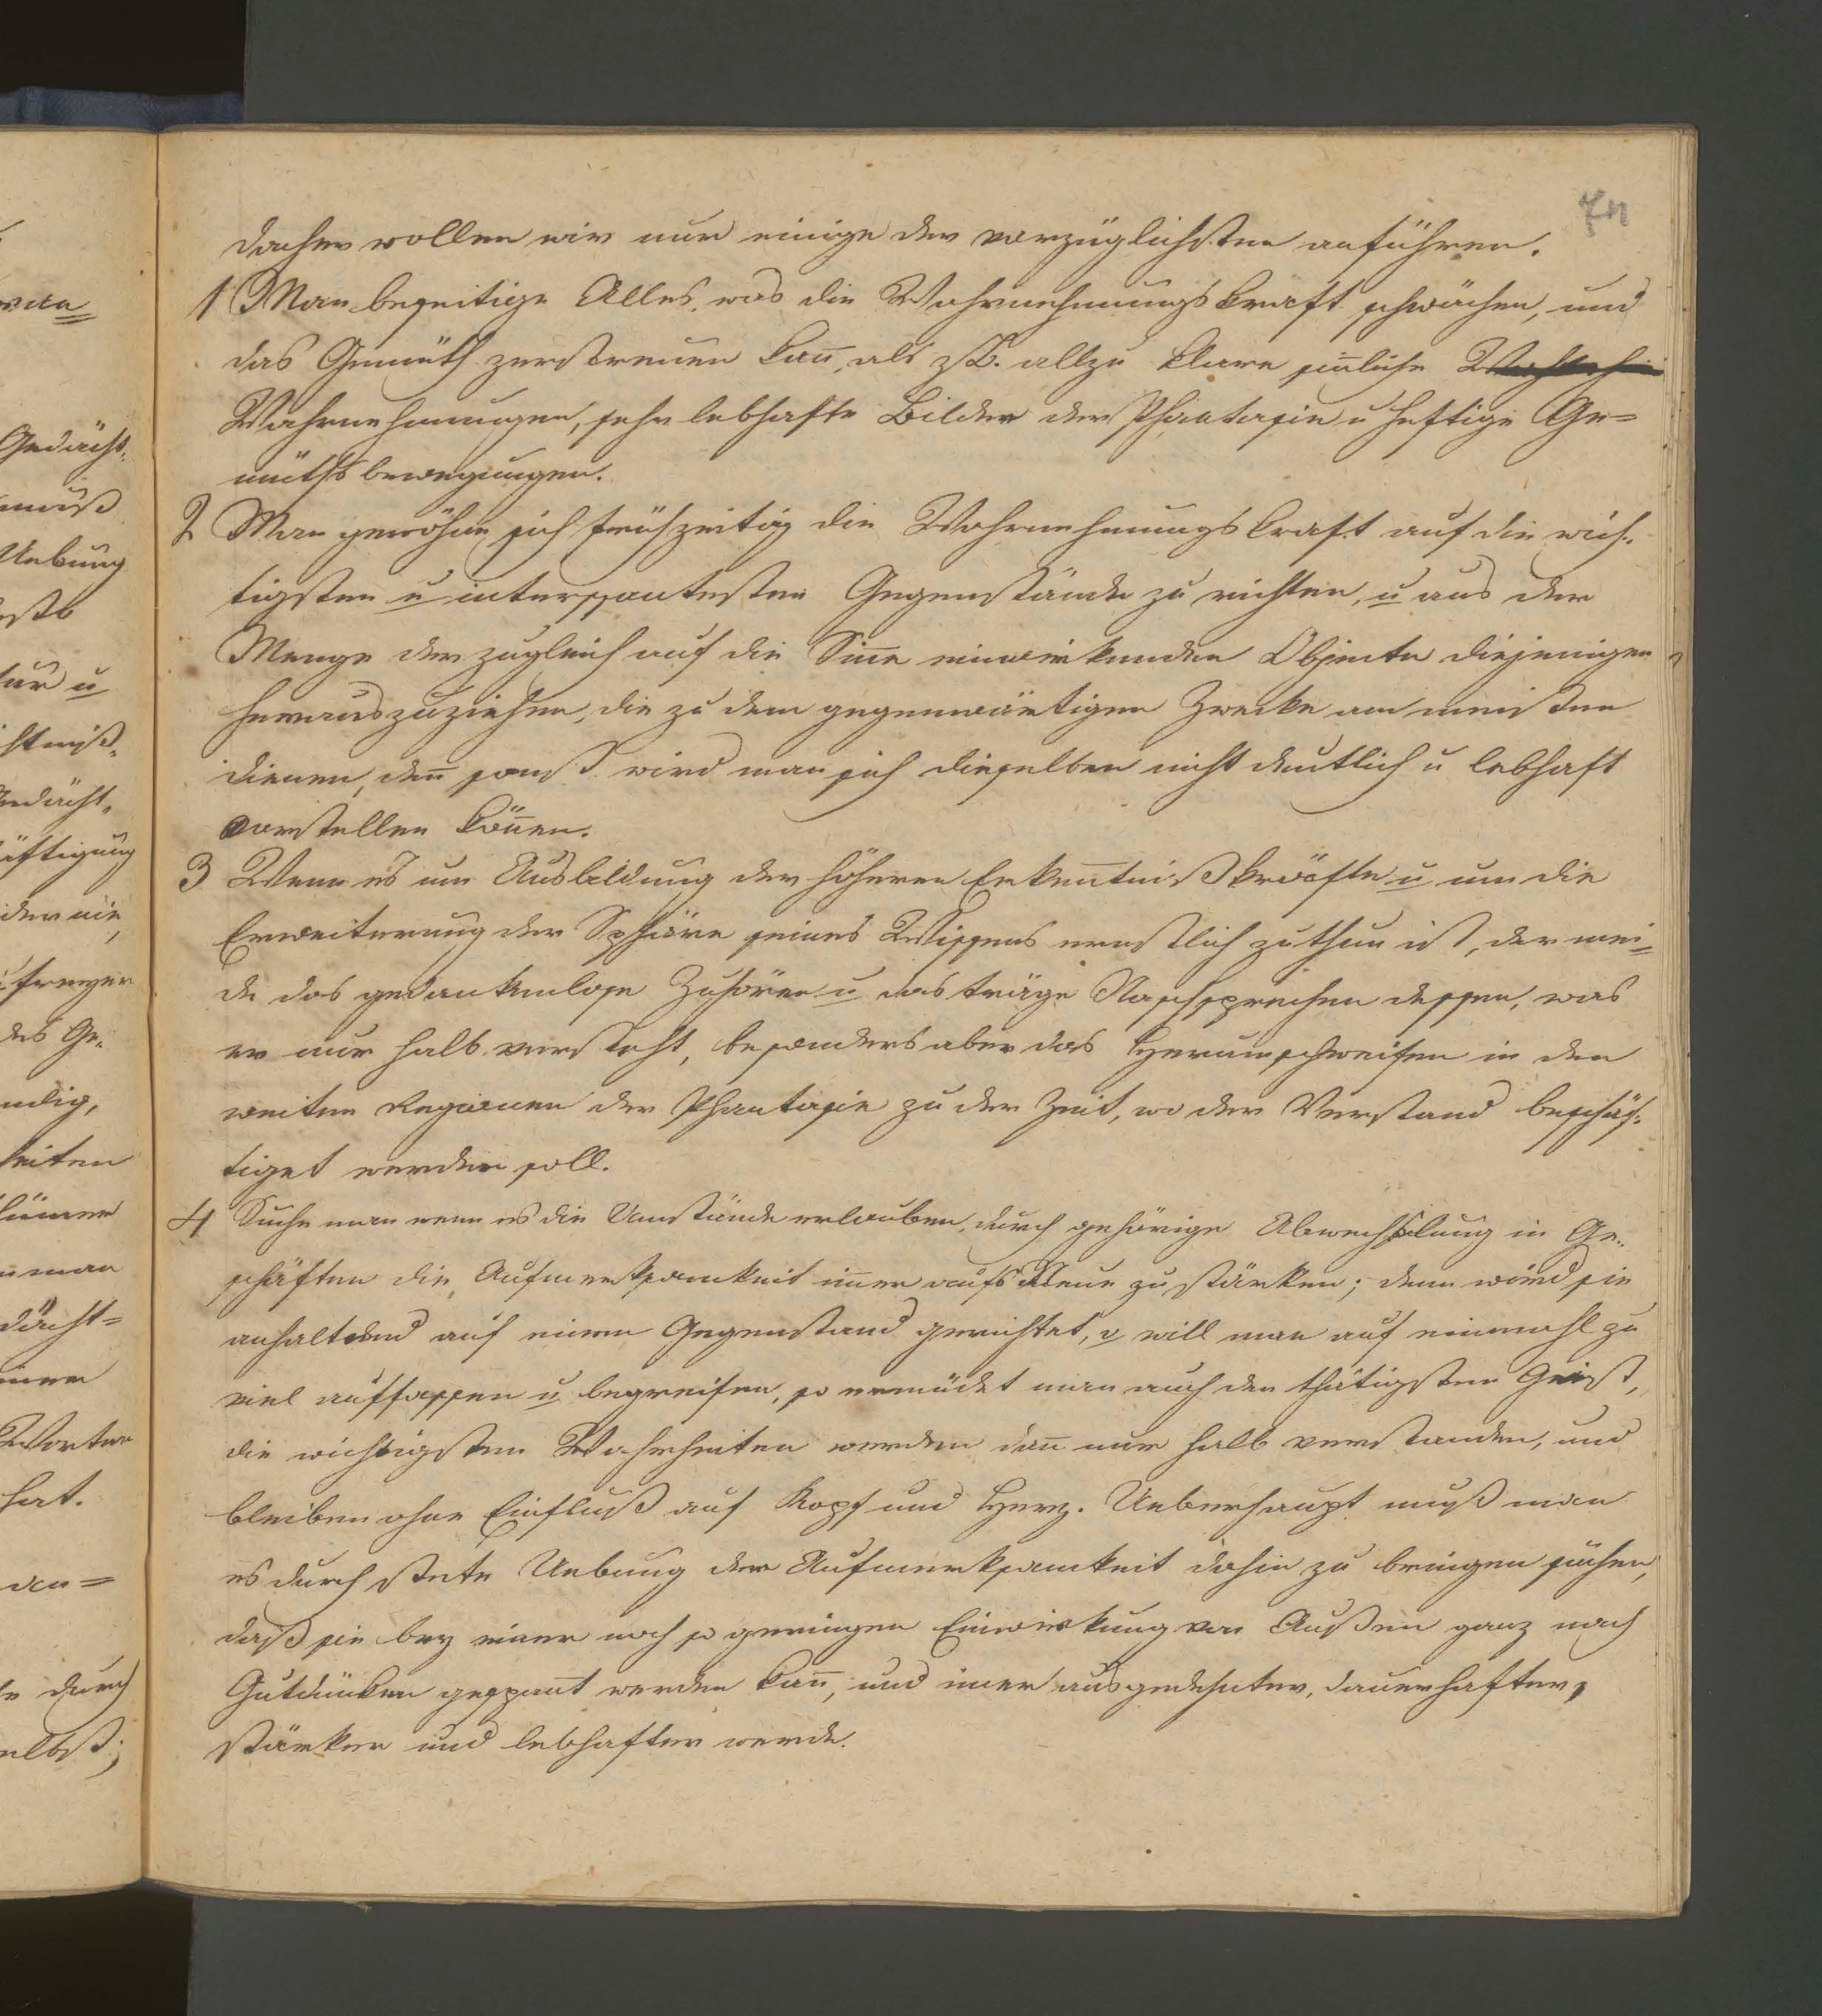 van
Gedächt-
muß
Uebung
u
Gedächt-
der nie,
des Ge-
man
dächt=
Worten
hat.
durch
selbst;
74
daher wollen wir nur einige der vorzüglichsten anführen.
1 Man beseitige Alles, was die Wahrnehmungskraft schwächen, und
das Gemüth zerstreuen kan̅, als z.B. allzu klare sin̅liche
Wahrnehmungen, sehr lebhafte Bilder der Phantasie u heftige Ge=
müthsbewegungen.
2 Man gewöhne sich frühzeitig die Wahrnehmungskraft auf die wich-
tigsten u interessantesten Gegenstände zu richten, u aus der
Menge der zugleich auf die Sin̅e einwirkenden Objecte diejenigen
herauszuziehen, die zu dem gegenwärtigen Zwecke am meisten
dienen, den̅ sonst wird man sich dieselben nicht deutlich u lebhaft
vorstellen kön̅en.
3 Wem es um Ausbildung der höheren Erken̅tnißkräfte u um die
Erweiterung der Sphäre seines Wissens ernstlich zuthun ist, der mei-
de das gedankenlose Zuhören u das träge Nachsprechen dessen, was
er nur halb versteht, besonders aber das Herumschweifen in den
weiten Regionen der Phantasie zu der Zeit, wo der Verstand beschäf-
tiget werden soll.
4 Suche man wenn es die Umstände erlauben, durch gehörige Abwechslung in Ge-
schäften die Aufmerksamkeit im̅er aufs Neue zu stärken; denn wird sie
anhaltend auf einen Gegenstand gerichtet, u will man auf einmahl zu
viel auffassen u begreifen, so ermüdet man auch den thätigsten Geist,
die wichtigsten Wahrheiten werden dan̅ nur halb verstanden, und
bleiben ohne Einfluß auf Kopf und Herz. Ueberhaupt muß man
es durch stete Uebung der Aufmerksamkeit dahin zu bringen suchen,
daß sie bey einer noch so geringen Einwirkung von Außen ganz nach
Gutdünken gespan̅t werden kan̅, und im̅er ausgedehnter, dauerhafter,
stärker und lebhafter werde.